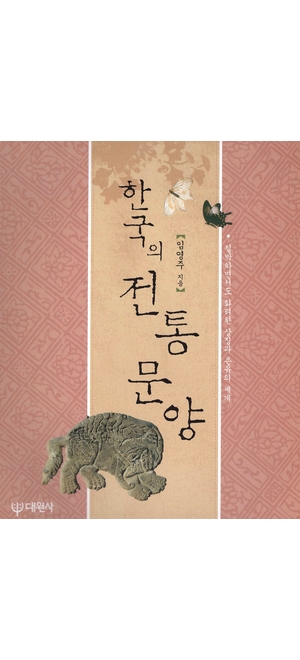 한국의 전통 문양
【임영주 지음】
• 소박하면서도 화려한 상징과 은유의 세계
대원사